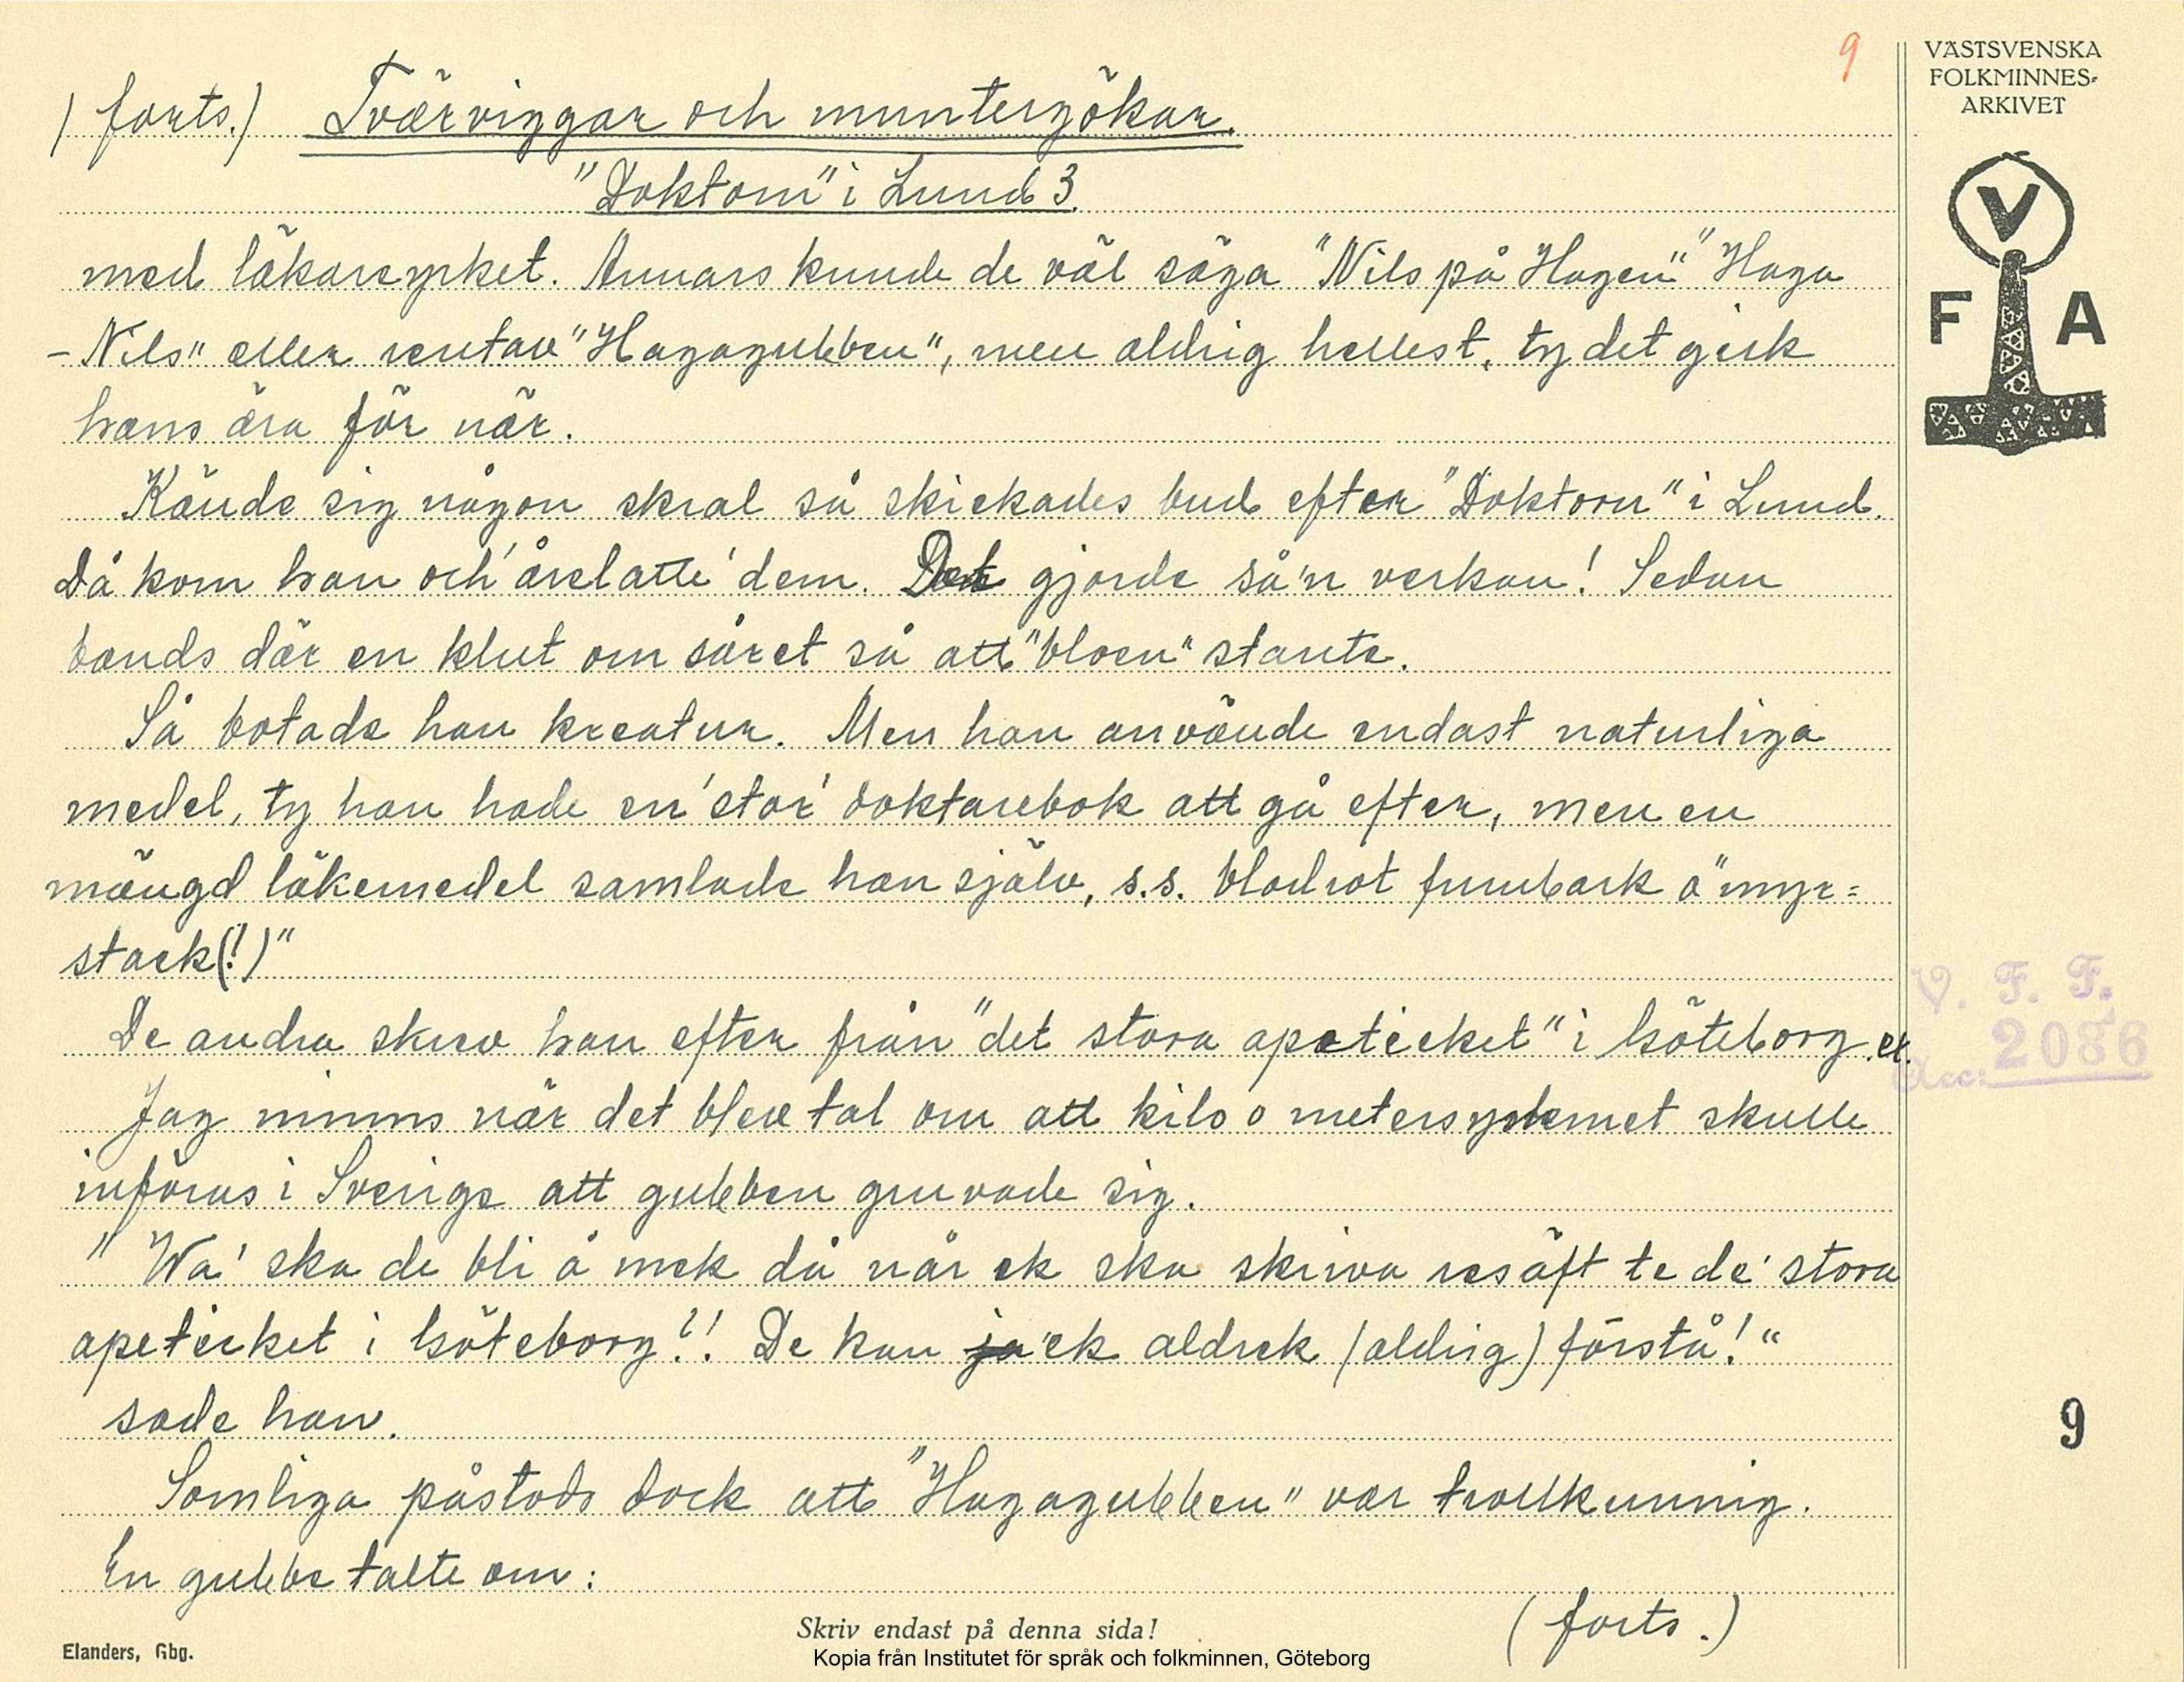 9
VÄSTSVENSKA
FOLKMINNES-
ARKIVET
V
F A
(forts.) Tvärviggar och muntergökar.
"Doktorn" i Lund 3.
med läkareyrket. Annars kunde de väl säga "Nils på Hagen" "Haga
-Nils" eller rentav "Hagagubben", men aldrig hellest, ty det gick
hans ära för när.
Kände sig någon skral så skickades bud efter "Doktorn" i Lund.
Då kom han och 'årelatte' dem. Det gjorde så'n verkan! Sedan
bands där en klut om såret så att "bloen" stante.
Så botade han kreatur. Men han använde endast naturliga
medel, ty han hade en 'stor' doktarebok att gå efter, men en
mängd läkemedel samlade han själv, s.s. blodrot furubark o "myr=
stack(!)"
De andra skrev han efter från "det stora apetecket" i Göteborg.
Jag minns när det blev tal om att kilo o metersystemet skulle
införas i Sverige att gubben gruvade sig.
" Wa' ska de bli å mek då når ek ska skriva resäft te de' stora
apetecket i Göteborg?! De kan ja 'ek aldrek (aldrig) förstå!"
sade han.
Somliga påstods dock att "Hagagubben" var trollkunnig.
En gubbe talte om:
(forts.)
V. F. F.
Acc: 2086
9
Skriv endast på denna sida!
Elanders, Gbg.
Kopia från Institutet för språk och folkminnen, Göteborg